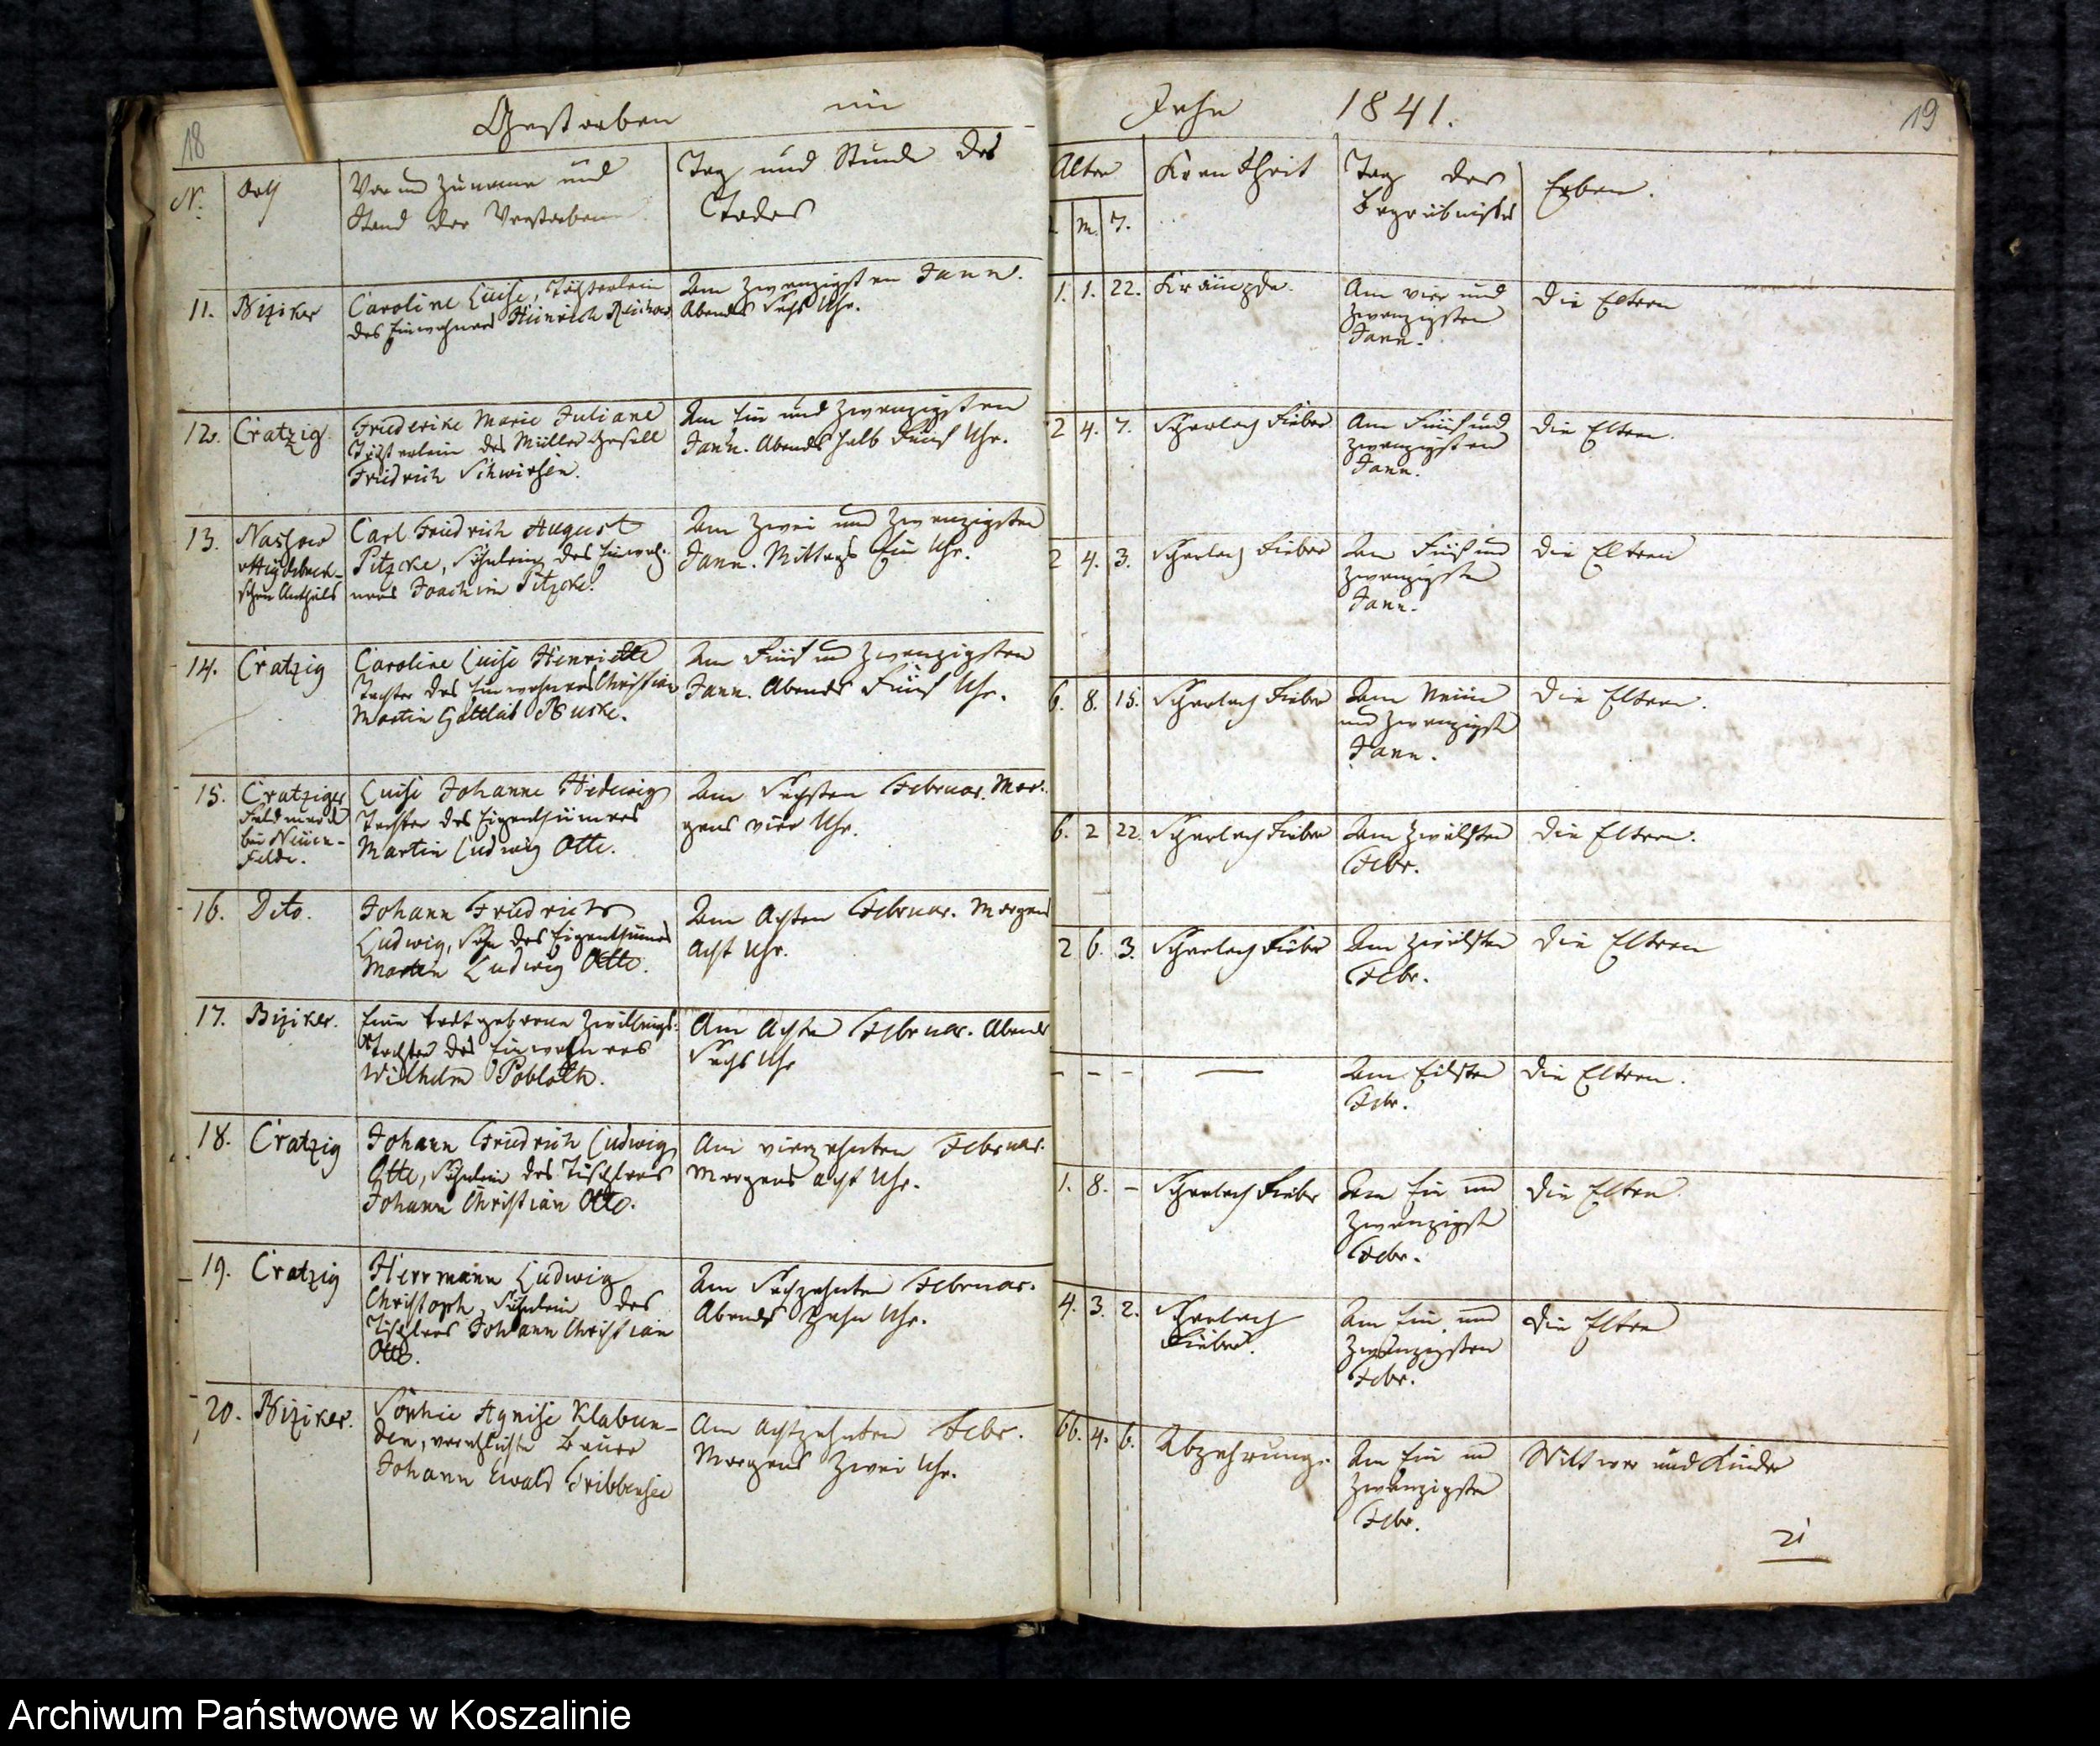 18
Gestorben im
Jahr 1841.
19
N.
Ort
Vor und Zuname und
Stand der Verstorbenen
Tag und Stunde des
Todes
Alter
M. T.
Krankheit
Tag des
Begräbnisses
Erben.
11.
Biziker
Caroline Luise, Töchterlein
des Einwohners Heinrich
Am zwanzigsten Janr.
Abends sechs Uhr.
1. 1. 22.
Krämpfe.
Am vier und
zwanzigsten
Janr.
Die Eltern
12.
Cratzig.
Friederike Marie Juliane
Töchterlein des Müller Gesell
Friedrich Schwirsen.
Am Ein und zwanzigsten
Janr. Abends halb Fünf Uhr.
2 4. 7.
Scharlach Fieber
Am Fünf und
zwanzigsten
Janr.
Die Eltern.
13.
Nassow
Heydebreck-
schen Antheils
Carl Friedrich August
Pitzcke, Söhnlein des Einwoh-
ners Joachim Pitzcke.
Am Zwei und Zwanzigsten
Janr. Mittags Ein Uhr.
2 4. 3.
Scharlach Fieber
Am Fünf und
zwanzigsten
Janr.
Die Eltern
14.
Cratzig
Caroline Luise Henriette
Tochter des Einwohners Christian
Martin Gottlieb Buske.
Am Fünf und Zwanzigsten
Janr. Abends Fünf Uhr.
6. 8. 15.
Scharlach Fieber
Am Neun
und zwanzigst
Janr.
Die Eltern.
15.
Cratziger
Feldmark
bei Neuen-
felde.
Luise Johanne Hedwig
Tochter des Eigenthümers
Martin Ludwig Otto.
Am Sechsten Februar. Mor-
gens vier Uhr.
6. 2 22.
Scharlach Fieber
Am Zwölften
Febr.
Die Eltern.
16.
Dito.
Johann Friedrich
Ludwig, Sohn des Eigenthümers
Martin Ludwig Otto.
Am Achten Februar. Morgens
acht Uhr.
2 6. 3.
Scharlach Fieber
Am Zwölften
Febr.
Die Eltern
17.
Biziker.
Eine todtgeborne Zwillings-
tochter des Einwohners
Wilhelm Pobloth.
Am Achten Februar. Abends
sechs Uhr
– – –
—
Am Eilften
Febr.
Die Eltern.
18.
Cratzig
Johann Friedrich Ludwig
Otto, Söhnlein des Tischlers
Johann Christian Otto.
Am vierzehnten Februar.
Morgens acht Uhr.
1. 8. –
Scharlach Fieber
Am Ein und
zwanzigst
Febr.
Die Eltern.
19.
Cratzig
Herrmann Ludwig
Christoph, Söhnlein des
Tischlers Johann Christian
Otto.
Am Sechzehnten Februar.
Abends Zehn Uhr.
4. 3. 2.
Scharlach
Fieber.
Am Ein und
Zwanzigsten
Febr.
Die Eltern
20.
Biziker.
Sophie Agnise Klabun-
den, verehlichte Bauer
Johann Ewald Gribbensee
Am achtzehnten Febr.
Morgens Zwei Uhr.
66. 4. 6.
Abzehrung.
Am Ein und
Zwanzigsten
Febr.
Wittwer und Kinder
21
Archiwum Państwowe w Koszalinie